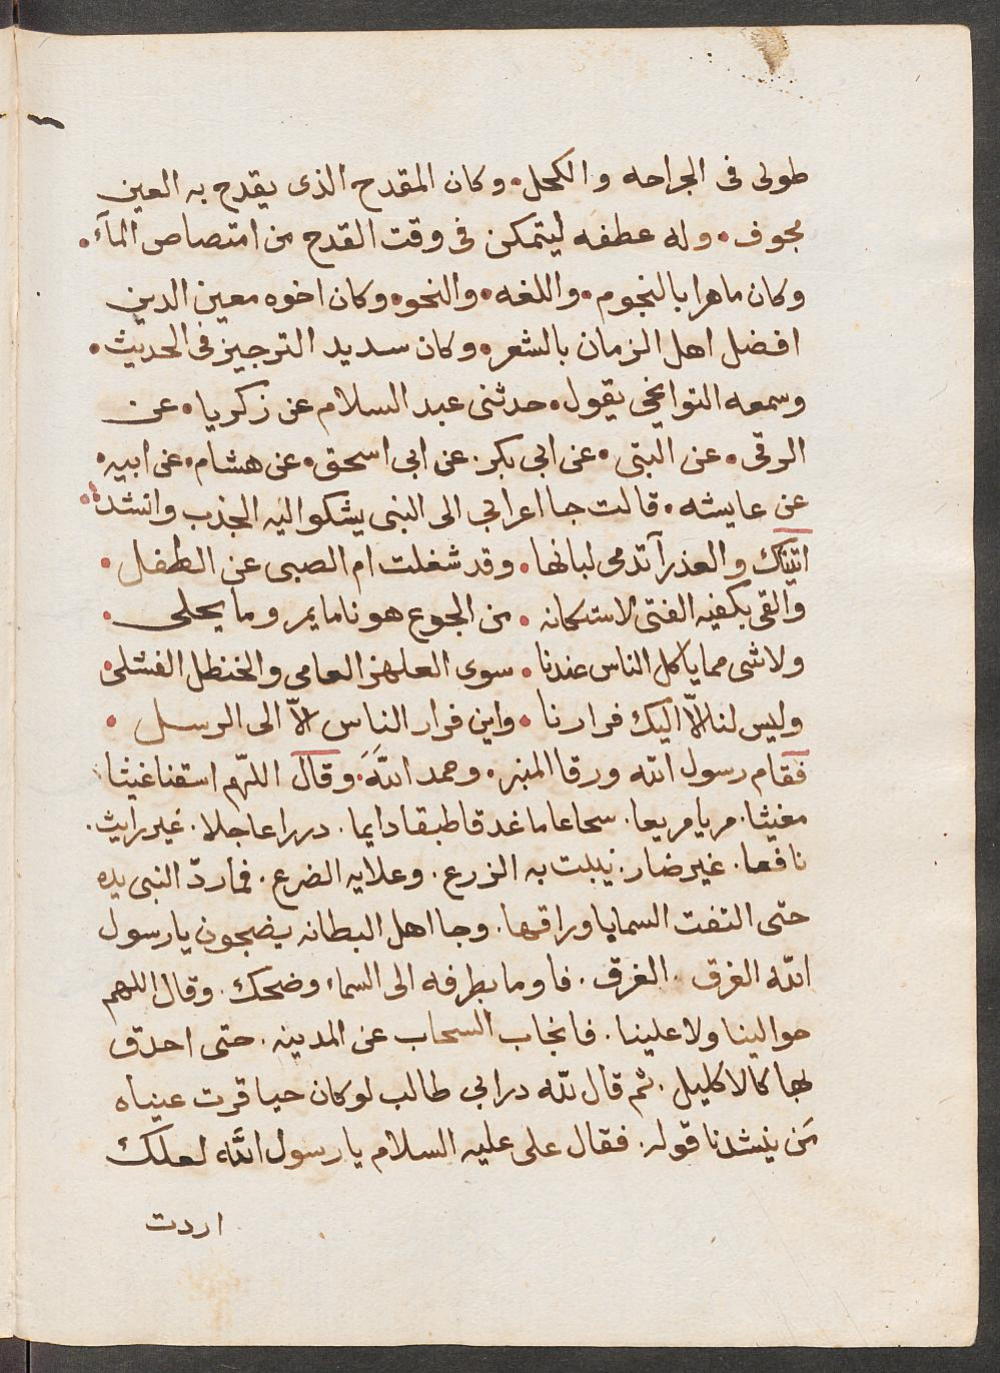 طولى فى الجراحه والكحل. وكان المقدح الذى يقدح به العين
مجوف. وله عطفه ليتمكن فى وقت القدح من امتصاص المآء.
وكان ماهرا بالنجوم. واللغه. والنحو. وكان اخوه معين الدين
افضل اهل الزمان بالشعر. وكان سديد الترجيز فى الحديث.
وسمعه التوابخى يقول. حدثنى عبد السلام عن زكريا. عن
الرقى. عن البتى. عن ابى بكر. عن ابى اسحق. عن هشام. عن ابيه.
عن عايشه. قالت جا اعرابي الى النبى يشكوا اليه الجذب وانشده.
اتيناك والعذرآ تدمى لبانها. وقد شغلت ام الصبى عن الطفل.
والقى بكفيه الفتى لاستكانه. من الجوع هونا ما يمر وما يحلى.
ولا شى مما ياكل الناس عندنا. سوى العلهز العامى والحنظل الفسلى.
وليس لنا الاّ اليك فرارنا. واين فرار الناس الاّ الى الرسل.
فقام رسول الله ورقا المنبر. وحمد اللهَ. وقال اللهّم اسقنا غيثا
مغيثا. مريا مريعا. سحاعا ما غدقا طبقا دايما. دررا عاجلا. غير رايث.
نافعا. غير ضار. نيبت به الزرع. وعلا به الضرع. فما ردّ النبى يده
حتى التفت السما باوراقها. وجا اهل البطانه يضجون يا رسول
الله الغرق. الغرق. فاوما بطرفه الى السماء وضحك. وقال اللهم
حوالينا ولا علينا. فانجاب السحاب عن المدينه. حتى احدق
بها كالاكليل. ثم قال لله در ابي طالب لو كان حيا قرت عيناه
مَن ينشدنا قوله. فقال على عليه السلام يا رسول الله لعلك
اردت